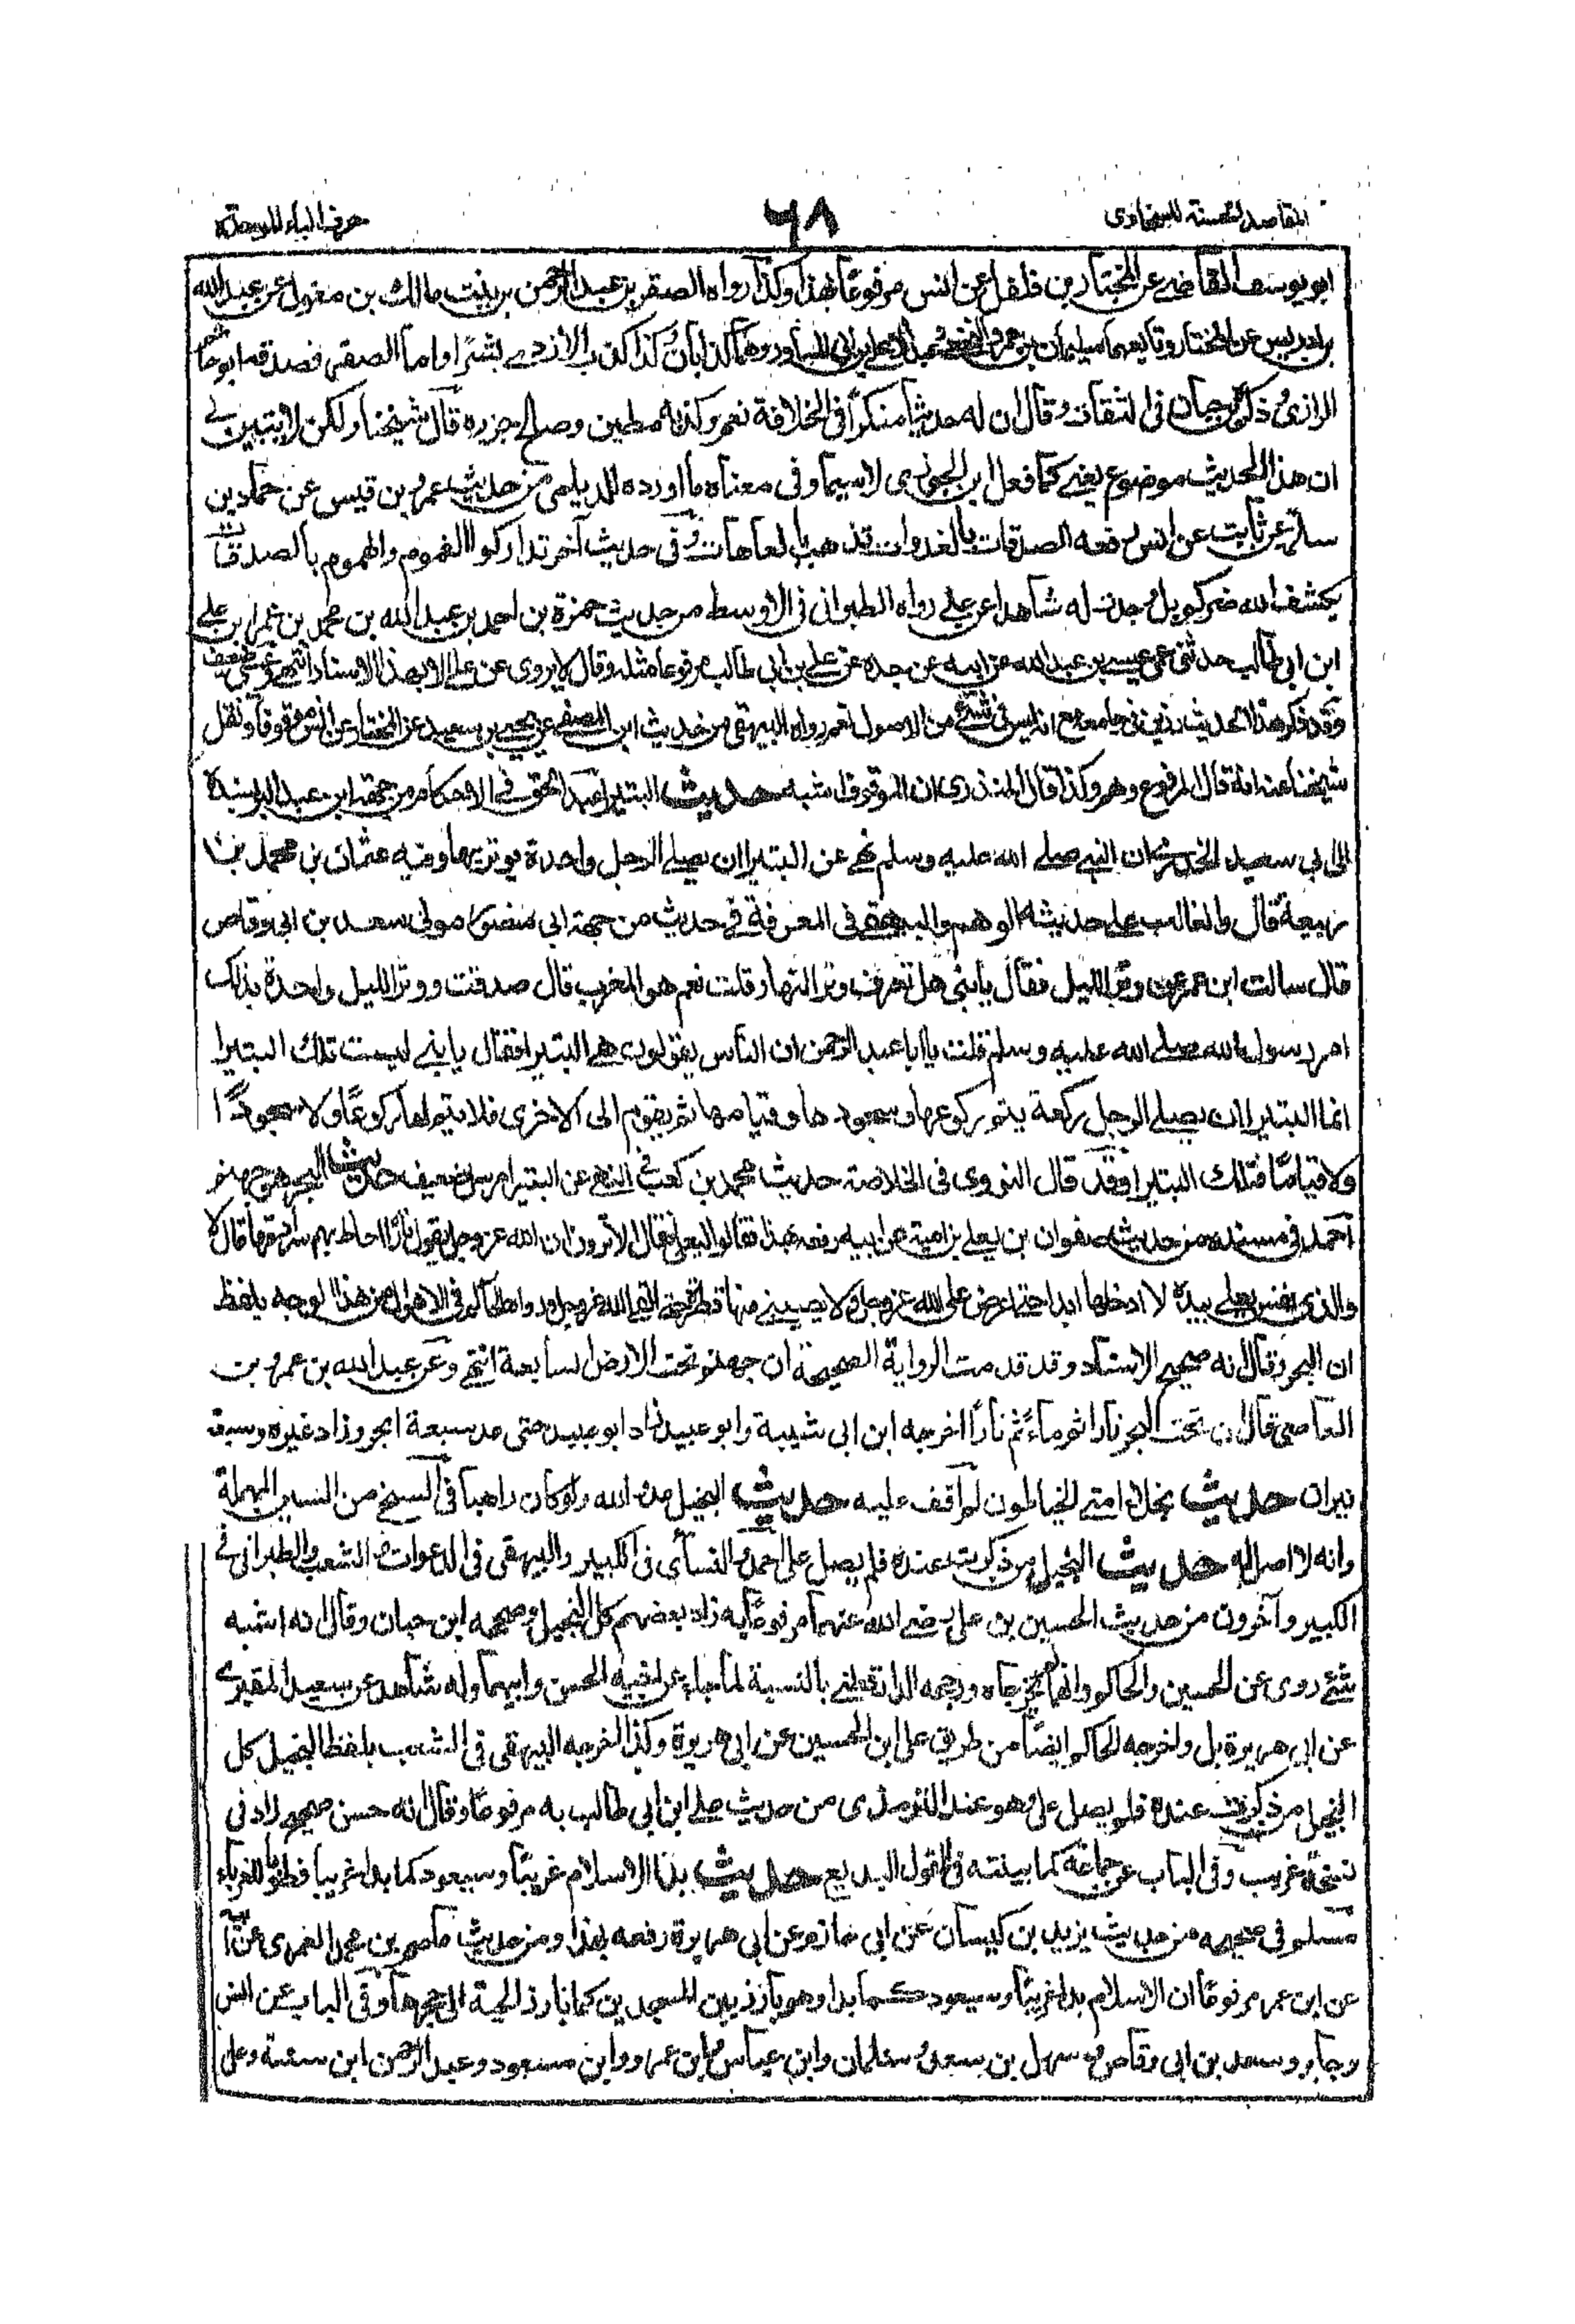 المقاصد الحسنة للسخاوى
٦٨
حرف الباء الموحدة
ابو يوسف القاضى عن المختار بن فلفل عن انس مرفوعًا بهذا وكذا رواه الصقر بن عبد الرحمن بن بنت مالك بن مغول عن عبد الله
بن ادريس عن المختار وتابعهما سليمان بن عمرو النخعى وعبد الاعلى بن ابى المساور وهما كذابان وكذا كذب الازدى بشرًا واما الصقر فصدقه ابو حاتم
الرازى وذكره ابن حبان فى الثقات وقال ان له حديثا منكرًا فى الخلافة نعم وكذبه مطين وصالح جزره قال شيخنا ولكن لا يتبين لى
ان هذا الحديث موضوع يعنى كما فعل ابن الجوزى لاسيما وفى معناه ما اورده الديلمى من حديث عمرو بن قيس عن حماد بن
سلمة عن ثابت عن انس رفعه الصدقات بالغدوات تذهب بالعاهات وفى حديث آخر تداركوا الغموم والهموم بالصدقات
يكشف الله ضركم بل وجدت له شاهدا عن على رواه الطبرانى فى الاوسط من حديث حمزة بن احمد بن عبد الله بن محمد بن عمر بن على
ابن ابى طالب حدثنى عمى عيسى بن عبد الله عن ابيه عن جده عن على بن ابى طالب مرفوعا مثله وقال لا يروى عن على الا بهذا الاسناد انتهى وعيسى ضعيف
وقد ذكر هذا الحديث رزين فى جامعه مع انه ليس فى شئ من الاصول نعم رواه البيهقى من حديث ابن المصفى عن يحيى بن سعيد عن المختار عن انس موقوفا ونقل
شيخنا عنه انه قال المرفوع وهم وكذا قال المنذرى ان الموقوف اشبه حديث البتيرا عبد الحق فى الاحكام من جهة ابن عبد البر بسنده
الى ابى سعيد الخدرى ان النبى صلى الله عليه وسلم نهى عن البتيرا ان يصلى الرجل واحدة يوتر بها وفيه عثمان بن محمد بن
ربيعة قال والغالب على حديثه الوهم والبيهقى فى المعرفة فى حديث من جهة ابى منصور مولى سعد بن ابى وقاص
قال سالت ابن عمر عن وتر الليل فقال يا بنى هل تعرف وتر النهار قلت نعم هو المغرب قال صدقت ووتر الليل واحدة بذلك
امر رسول الله صلى الله عليه وسلم قلت يا ابا عبد الرحمن ان الناس يقولون هى البتيرا فقال يا بنى ليست تلك البتيرا
انما البتيرا ان يصلى الرجل ركعة يتم ركوعها وسجودها وقيامها ثم يقوم الى الاخرى فلا يتم لها ركوعًا ولا سجودًا
ولا قيامًا فتلك البتيرا وقد قال النووى فى الخلاصة حديث محمد بن كعب فى النهى عن البتيرا مرسل ضعيف حديث البحر هو جهنم
احمد فى مسنده من حديث صفوان بن يعلى بن امية عن ابيه رفعه بهذا فقالوا ليعلى فقال الا ترون ان الله عز وجل يقول نارًا احاط بهم سرادقها قال لا
والذى نفس يعلى بيده لا ادخلها ابدا حتى اعرض على الله عز وجل ولا يصيبنى منها قطرة حتى القى الله عز وجل ورواه الحاكم فى الاهوال من هذا الوجه بلفظ
ان البحر وقال انه صحيح الاسناد وقد قدمت الرواية الصحيحة ان جهنم تحت الارض السابعة انتهى وعن عبد الله بن عمرو بن
العاصى قال ان تحت البحر نارا ثم ماءً ثم نارًا اخرجه ابن ابى شيبة وابو عبيد زاد ابو عبيد حتى عد سبعة ابحر وزاد غيره وسبع
نيران حديث بخلاء امتى الخياطون لم اقف عليه حديث البخيل عدو الله ولو كان راهبا فى السخى من السين المهملة
وانه لا اصل له حديث البخيل من ذكرت عنده فلم يصل على احمد والنسائى فى الكبير والبيهقى فى الدعوات والشعب والطبرانى فى
الكبير وآخرون من حديث الحسين بن على رضى الله عنهما مرفوعًا به زاد بعضهم كل البخيل وصححه ابن حبان وقال انه اشبه
شئ روى عن الحسين والحاكم وانهما لم يخرجاه ورجحه الدارقطنى بالنسبة لما جاء عن اخيه الحسن وابيهما وله شاهد عن سعيد المقبرى
عن ابى هريرة بل واخرجه الحاكم ايضًا من طريق على ابن الحسين عن ابى هريرة وكذا اخرجه البيهقى فى الشعب بلفظ البخيل كل
البخيل من ذكرت عنده فلم يصل على وهو عند الترمذى من حديث على ابن ابى طالب به مرفوعًا وقال انه حسن صحيح زاد فى
نسخة غريب وفى الباب عن جماعة كما بينته فى القول البديع حديث بدا الاسلام غريبًا وسيعود كما بدا غريبا فطوبى للغرباء
مسلم فى صحيحه من حديث يزيد بن كيسان عن ابى حازم عن ابى هريرة رفعه بهذا ومن حديث عاصم بن محمد العمرى عن ابيه
عن ابن عمر مرفوعًا ان الاسلام بدا غريبًا وسيعود كما بدا وهو يارز بين المسجدين كما تارز الحية الى جحرها وفى الباب عن انس
وجابر وسعد بن ابى وقاص وسهل بن سعد وسلمان وابن عباس وابن عمرو وابن مسعود وعبد الرحمن ابن سنة وعلى